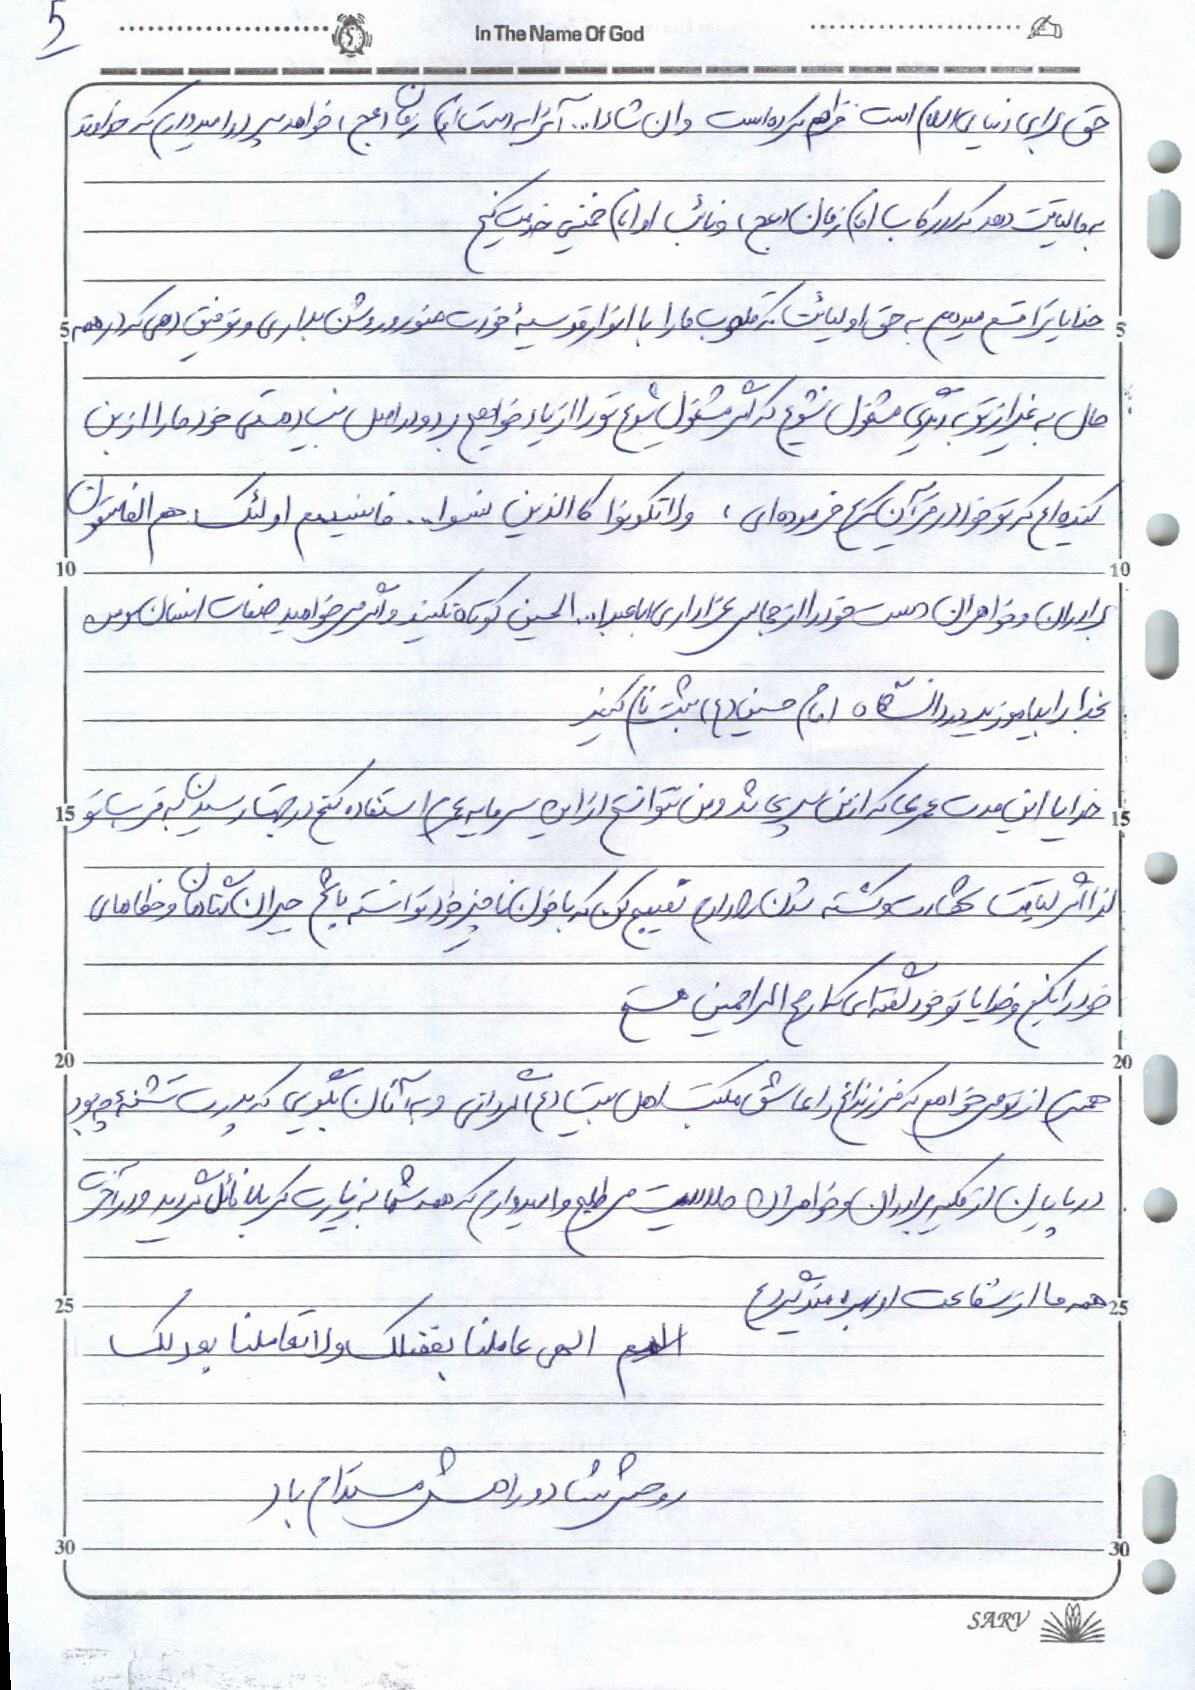 5
In The Name Of God
حق برای دنیای اسلام است فراهم کرده است وان شاءا... آنرا به دست امام زمان (عج) خواهد سپرد و امیدوارم که خداوند
به ما لیاقت دهد که در رکاب امام زمان (عج) و نائب او امام خمینی خدمت کنیم
خدایا ترا قسم میدهم به حق اولیائت که قلوب ما را با انوار قدسیهٔ خودت منور و روشن بداری و توفیق دهی که در همه
حال به غیر از تو به دیگری مشغول نشویم که اگر مشغول شویم تو را از یاد خواهیم برد و در اصل بنیاد هستی خود ما را از بین
کنده ایم که تو خود در قرآن کریم فرموده ای : ولا تکونوا کالذین نسوا... فانسیهم اولئک هم الفاسقون
برادران و خواهران دست خود را از مجالس عزاداری اباعبدا... الحسین کوتاه نکنید و اگر می خواهید صفات انسان مومن
بخدا را بیاموزید در دانشگاه امام حسین (ع) ثبت نام کنید
خدایا این مدت عمری که از من سپری شد و من نتوانستم از این سرمایه عمر استفاده کنم در جهت رسیدن به قرب تو
لذا اگر لیاقت شهادت و کشته شدن را دارم نصیبم کن که با خون ناچیز خود توانسته باشم جبران گناهان و خطاهای
خود را بکنم و خدایا تو خود گفته ای که ارحم الراحمین هستم
همسرم از تو می خواهم که فرزندانم را عاشق مکتب اهل بیت (ع) گردانی و به آنان بگویی که پدرت تشنهٔ چه بود
در پایان از کلیه برادران و خواهران حلالیت می طلبم و امیدوارم که همه شما به زیارت کربلا نائل گردید و در آخرت
همه ما از شفاعت او بهره مند گردیم
اللهم الهی عاملنا بفضلک ولا تعاملنا بعدلک
روحش شاد و راهش مستدام باد
5
5
10
10
15
15
20
20
25
25
30
30
SARV